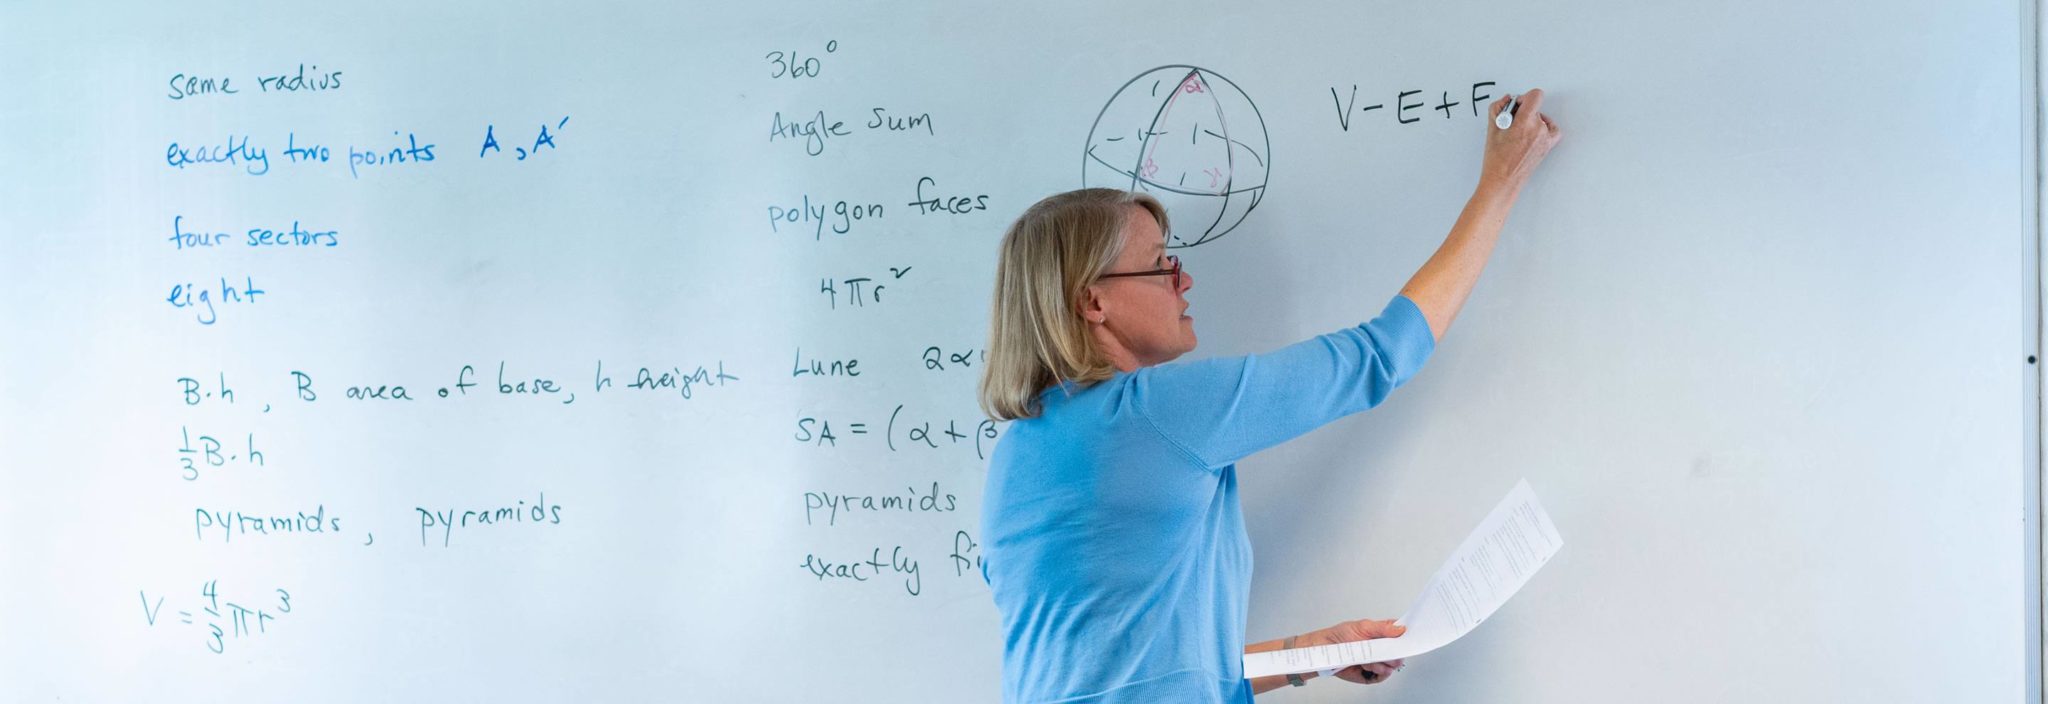 same radius
exactly two points A, A′
four sectors
eight
B·h, B area of base, h height
1/3 B·h
pyramids, pyramids
V = 4/3 πr³
360°
Angle sum
polygon faces
4πr²
Lune 2α
SA = (α + β
pyramids
exactly
α
β γ
V - E + F